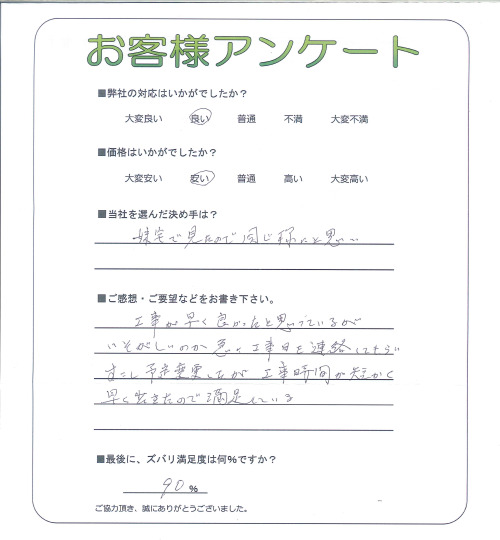 お客様アンケート
■弊社の対応はいかがでしたか？
大変良い 良い 普通 不満 大変不満
■価格はいかがでしたか？
大変安い 安い 普通 高い 大変高い
■当社を選んだ決め手は？
妹宅で見たので同じ様にと思い
■ご感想・ご要望などをお書き下さい。
工事が早く良かったと思っているが
いそがしいのか急に工事日を連絡して
予定変更したが 工事時間が短かく
早く出きたので満足している
■最後に、ズバリ満足度は何%ですか？
90 %
ご協力頂き、誠にありがとうございました。